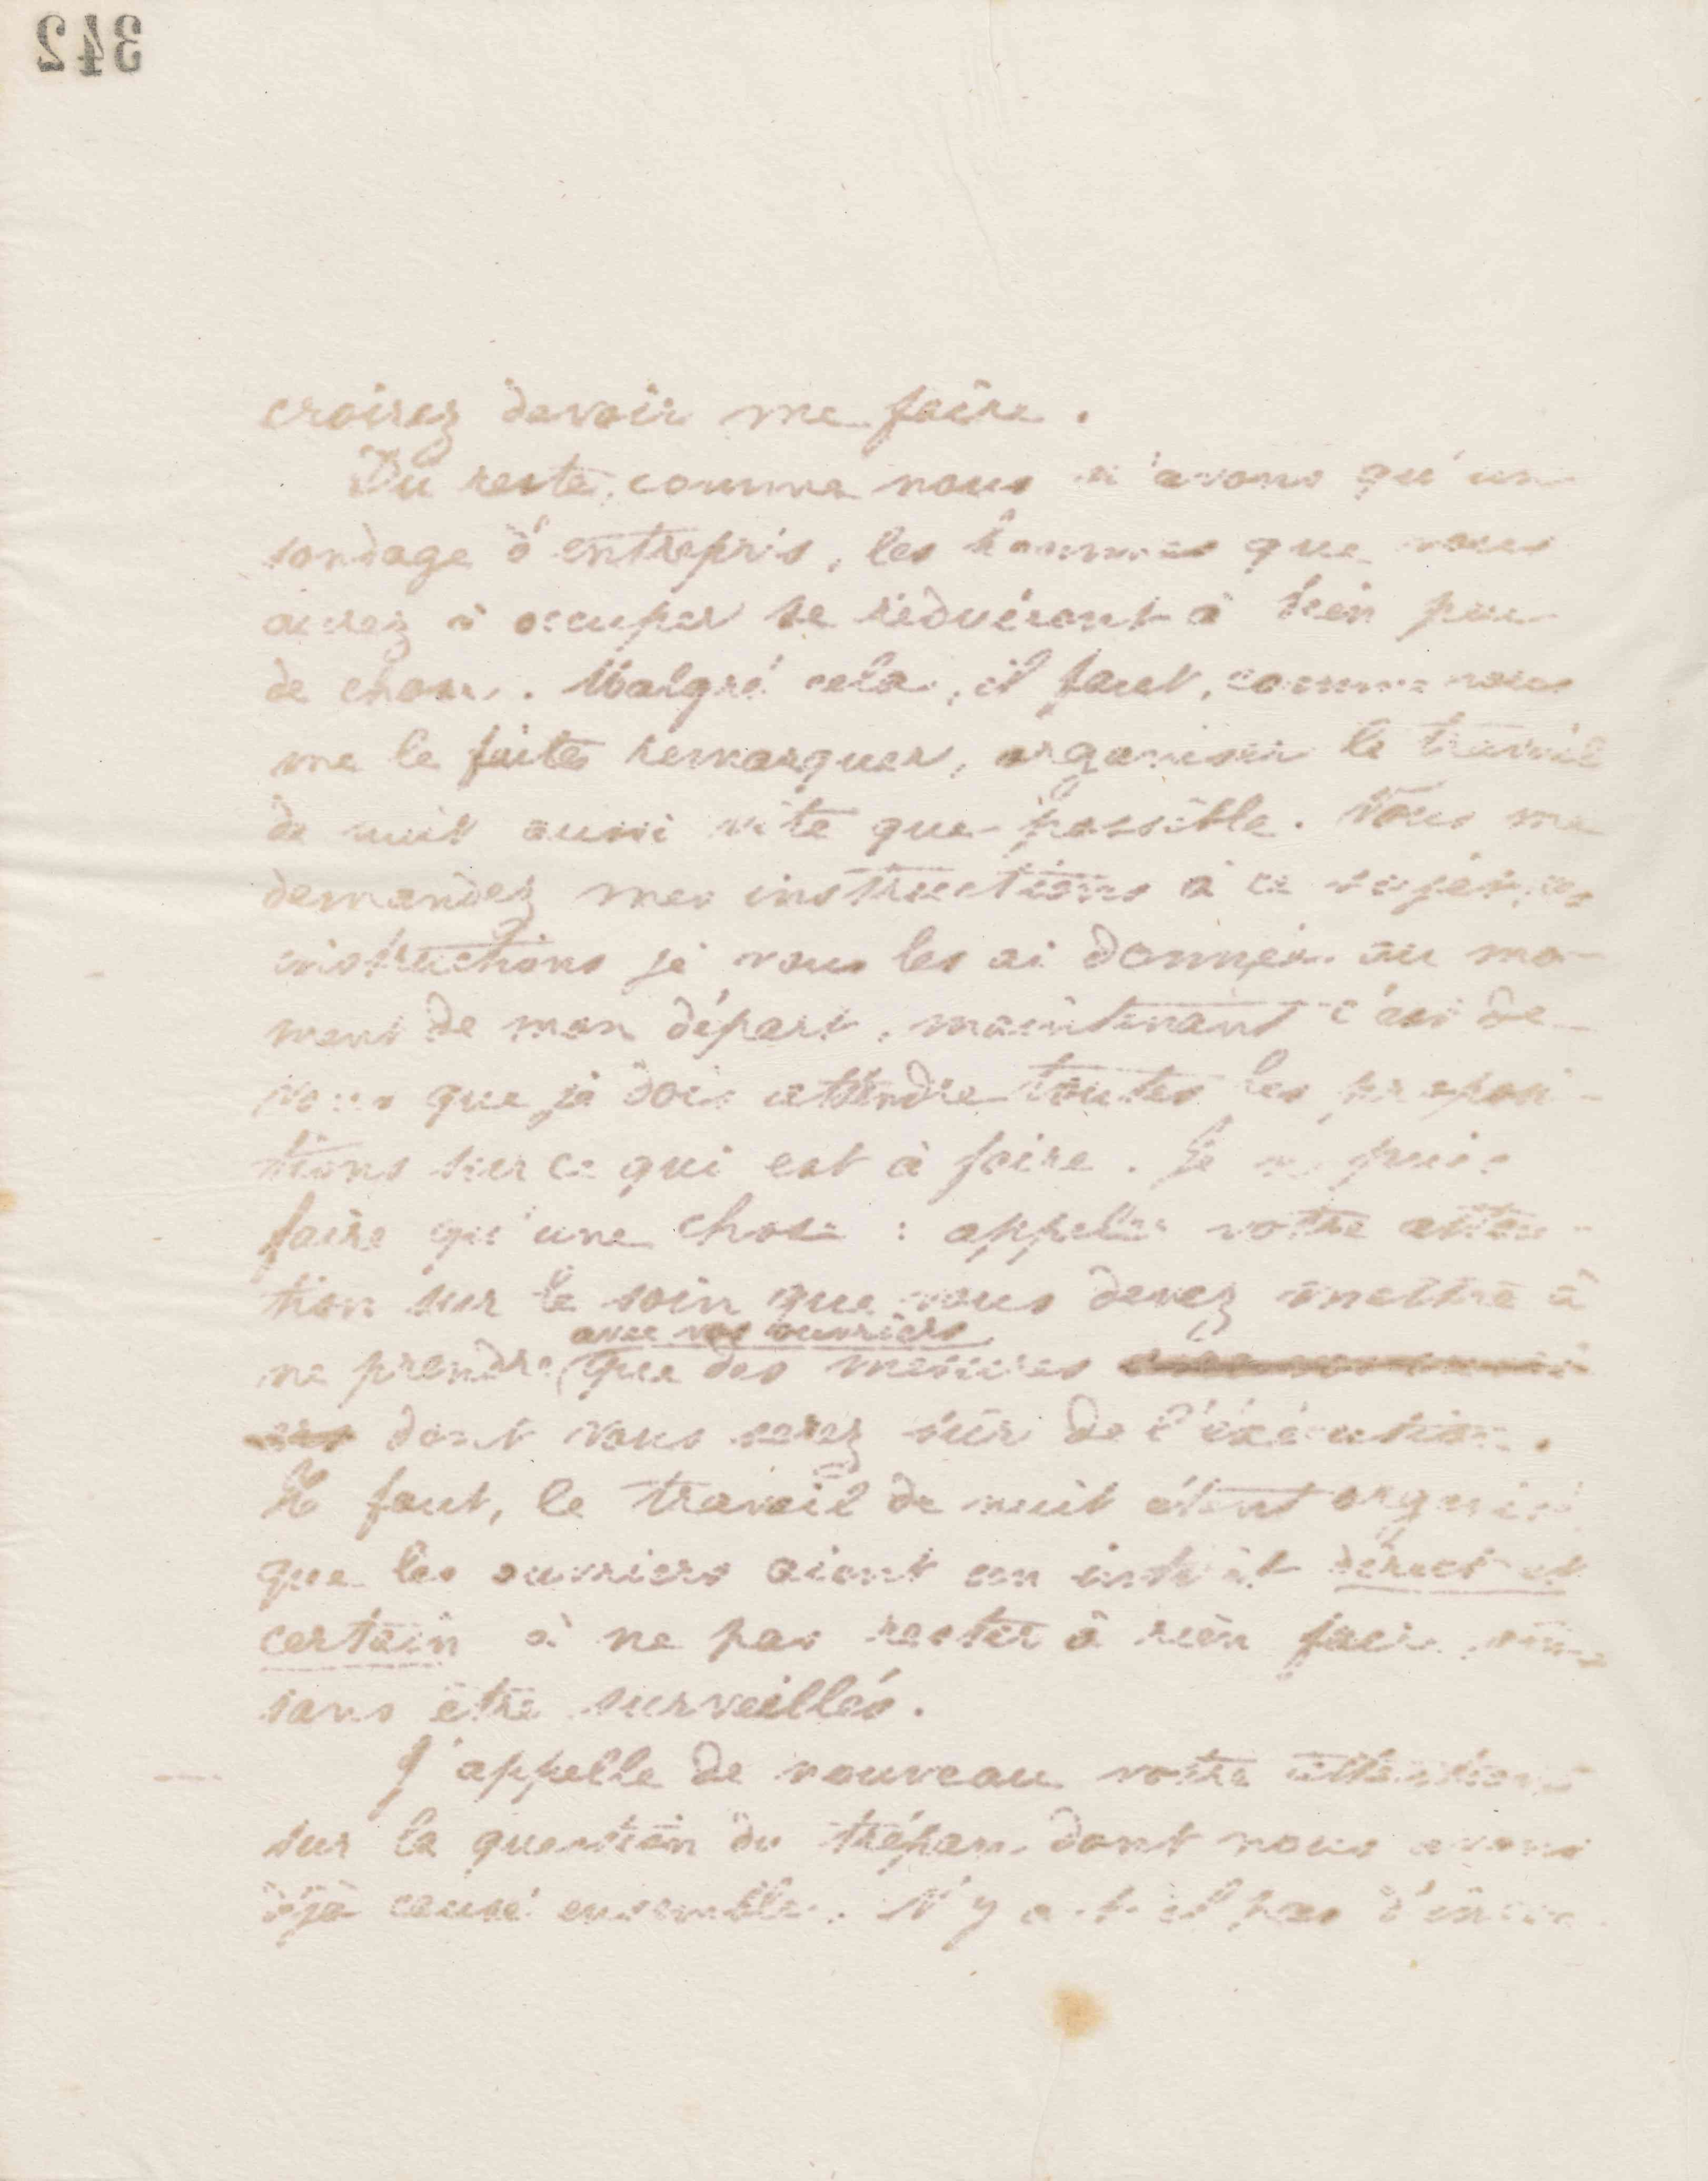 342
croirez devoir me faire.
Du reste, comme nous n'avons qu'un
sondage d'entrepris, les hommes que vous
aurez à occuper se réduiront à bien peu
de chose. Malgré cela, il faut, comme vous
me le faites remarquer, organiser le travail
de nuit aussi vite que possible. Vous me
demandez mes instructions à ce sujet, ces
instructions je vous les ai données au mo-
ment de mon départ, maintenant c'est de
vous que je dois attendre toutes les proposi-
tions sur ce qui est à faire. Je ne puis
faire qu'une chose : appeller votre atten-
tion sur le soin que vous devez mettre à
avec vos ouvriers
ne prendre que des mesures avec vos ouvri
ers dont vous serez sûr de l'éxécution.
Il faut, le travail de nuit étant organisé
que les ouvriers aient un intérêt direct et
certain à ne pas rester à rien faire, même
sans être surveillés.
J'appelle de nouveau votre attention
sur la question du trépan dont nous avons
déjà causé ensemble. N'y a-t-il pas